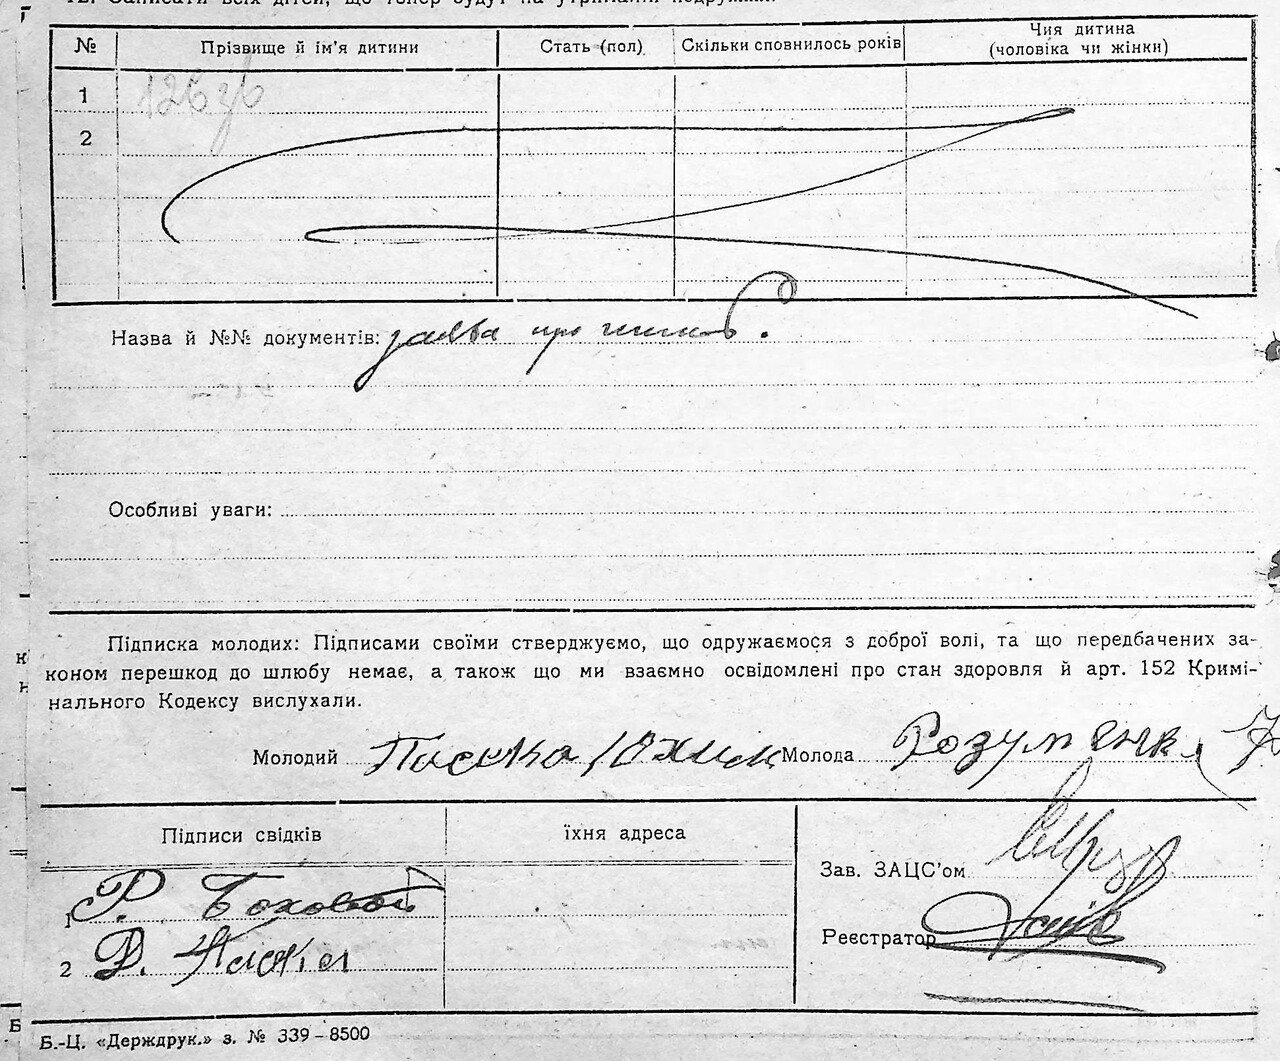 12. Записати всіх дітей, що тепер будут на утриманні подружжя.
№ Прізвище й ім'я дитини Стать (пол) Скільки сповнилось років Чия дитина (чоловіка чи жінки)
1
2
Назва й №№ документів: заява про
Особливі уваги:
Підписка молодих: Підписами своїми стверджуємо, що одружаємося з доброї волі, та що передбачених за-
коном перешкод до шлюбу немає, а також що ми взаємно освідомлені про стан здоровля й арт. 152 Кримі-
нального Кодексу вислухали.
Молодий Пасюка Юхим Молода Розуменко
Підписи свідків їхня адреса
Зав. ЗАЦС'ом
1 Р.
Реєстратор
2
Б.-Ц. «Держдрук.» з. № 339-8500